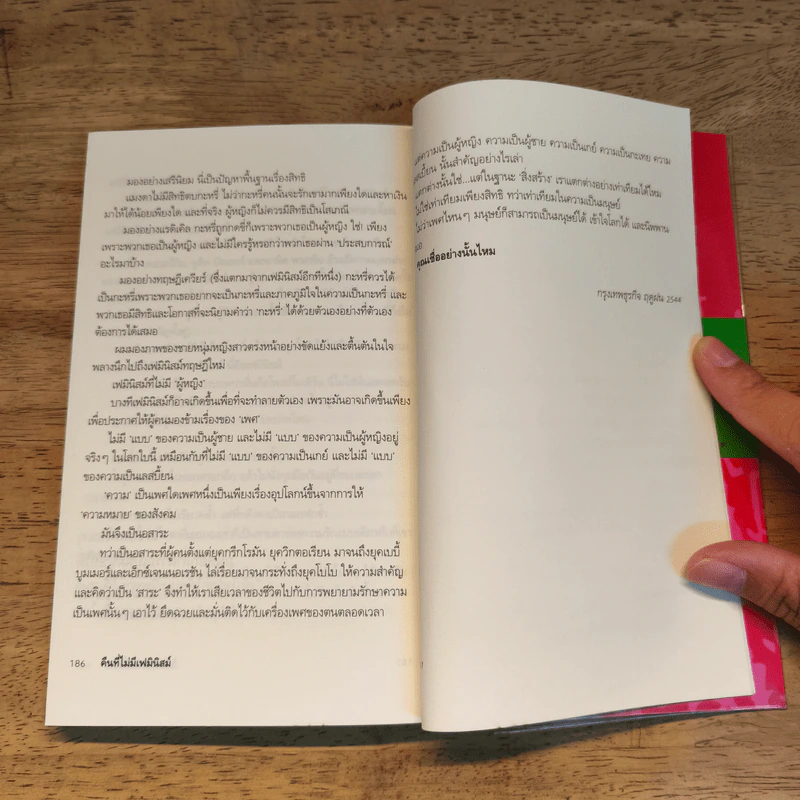 มองอย่างเสรีนิยม นี่เป็นปัญหาพื้นฐานเรื่องสิทธิ
แมงดาไม่มีสิทธิตบกะหรี่ ไม่ว่ากะหรี่คนนั้นจะรักเขามากเพียงใดและหาเงิน
มาให้ได้น้อยเพียงใด และที่จริง ผู้หญิงก็ไม่ควรมีสิทธิเป็นโสเภณี
มองอย่างแรดิเคิล กะหรี่ถูกกดขี่ก็เพราะพวกเธอเป็นผู้หญิง ใช่! เพียง
เพราะพวกเธอเป็นผู้หญิง และไม่มีใครรู้หรอกว่าพวกเธอผ่าน 'ประสบการณ์'
อะไรมาบ้าง
มองอย่างทฤษฎีเควียร์ (ซึ่งแตกมาจากเฟมินิสม์อีกทีหนึ่ง) กะหรี่ควรได้
เป็นกะหรี่เพราะพวกเธออยากจะเป็นกะหรี่และภาคภูมิใจในความเป็นกะหรี่ และ
พวกเธอมีสิทธิและโอกาสที่จะนิยามคำว่า 'กะหรี่' ได้ด้วยตัวเองอย่างที่ตัวเอง
ต้องการได้เสมอ
ผมมองภาพของชายหนุ่มหญิงสาวตรงหน้าอย่างขัดแย้งและตื้นตันในใจ
พลางนึกไปถึงเฟมินิสม์ทฤษฎีใหม่
เฟมินิสม์ที่ไม่มี 'ผู้หญิง'
บางทีเฟมินิสม์ก็อาจเกิดขึ้นเพื่อที่จะทำลายตัวเอง เพราะมันอาจเกิดขึ้นเพียง
เพื่อประกาศให้ผู้คนมองข้ามเรื่องของ 'เพศ'
ไม่มี 'แบบ' ของความเป็นผู้ชาย และไม่มี 'แบบ' ของความเป็นผู้หญิงอยู่
จริงๆ ในโลกใบนี้ เหมือนกับที่ไม่มี 'แบบ' ของความเป็นเกย์ และไม่มี 'แบบ'
ของความเป็นเลสเบี้ยน
'ความ' เป็นเพศใดเพศหนึ่งเป็นเพียงเรื่องอุปโลกน์ขึ้นจากการให้
'ความหมาย' ของสังคม
มันจึงเป็นอสาระ
ทว่าเป็นอสาระที่ผู้คนตั้งแต่ยุคกรีกโรมัน ยุควิกตอเรียน มาจนถึงยุคเบบี้
บูมเมอร์และเอ็กซ์เจนเนอเรชัน ไล่เรื่อยมาจนกระทั่งถึงยุคโบโบ ให้ความสำคัญ
และคิดว่าเป็น 'สาระ' จึงทำให้เราเสียเวลาของชีวิตไปกับการพยายามรักษาความ
เป็นเพศนั้นๆ เอาไว้ ยึดฉวยและมั่นติดไว้กับเครื่องเพศของตนตลอดเวลา
186 คืนที่ไม่มีเฟมินิสม์
ความเป็นผู้หญิง ความเป็นผู้ชาย ความเป็นเกย์ ความเป็นกะเทย ความ
นั้นสำคัญอย่างไรเล่า
แตกต่างนั้นใช่...แต่ในฐานะ 'สิ่งสร้าง' เราแตกต่างอย่างเท่าเทียมได้ไหม
ไม่ใช่เท่าเทียมเพียงสิทธิ ทว่าเท่าเทียมในความเป็นมนุษย์
ไม่ว่าเพศไหนๆ มนุษย์ก็สามารถเป็นมนุษย์ได้ เข้าใจโลกได้ และนิพพาน
คุณเชื่ออย่างนั้นไหม
กรุงเทพธุรกิจ ฤดูฝน 2544